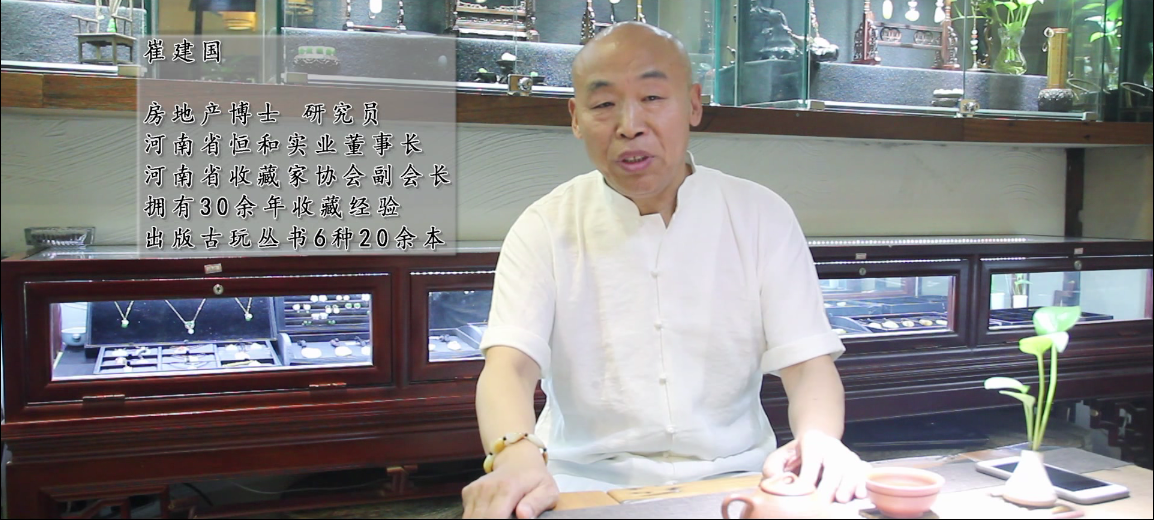 崔建国
房地产博士 研究员
河南省恒和实业董事长
河南省收藏家协会副会长
拥有30余年收藏经验
出版古玩丛书6种20余本